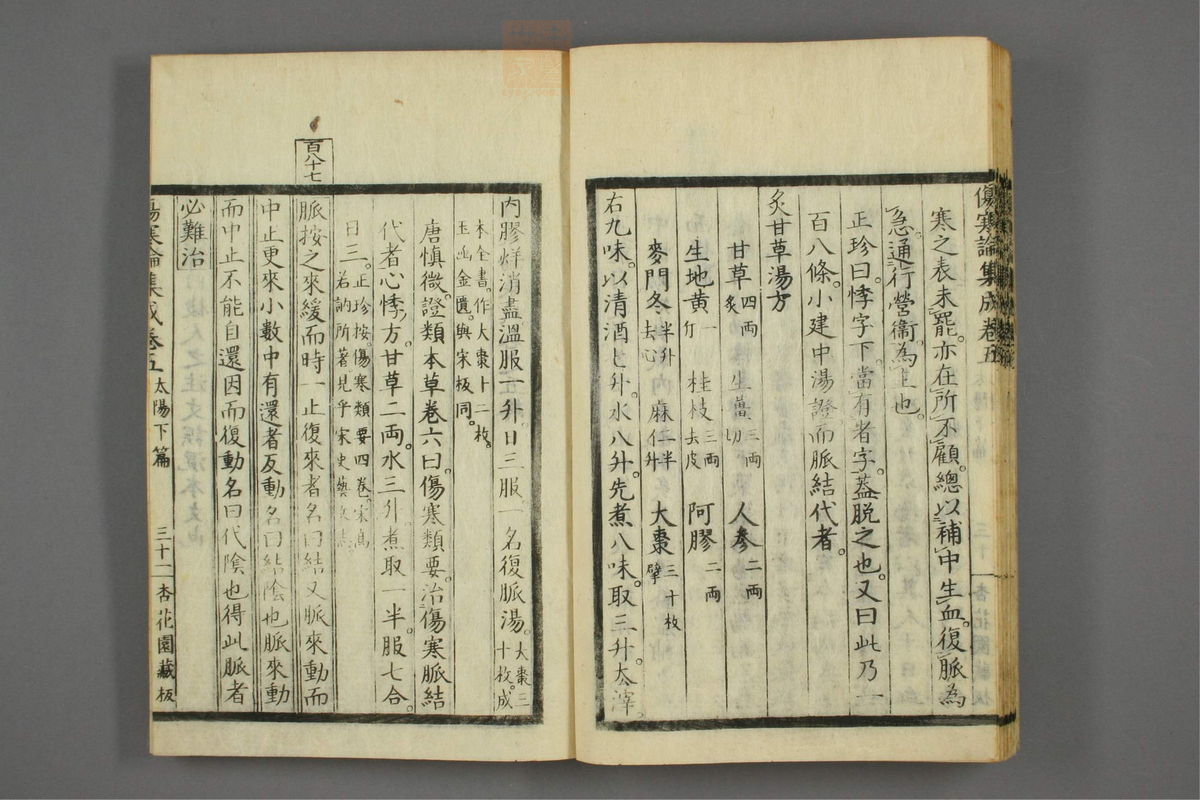 傷寒論集成卷五
寒之表未罷。亦在所不顧。總以補中生血。復脈為
急。通行營衞。為主也。
正珍曰。悸字下。當有者字。蓋脱之也。又曰此乃一
百八條。小建中湯證而脈結代者。
炙甘草湯方
甘草四両炙 生薑三両切 人參二両
生地黄一斤 桂枝三両去皮 阿膠二両
麥門冬半升去心 麻仁半升 大棗三十枚擘
右九味。以清酒七升。水八升。先煮八味。取三升。去滓。
内膠烊消盡温服一升。日三服。一名復脈湯。大棗三十枚。成
本全書。作大棗十二枚。玉函金匱。與宋板同。
唐慎微。證類本草卷六曰。傷寒類要。治傷寒脈結
代者心悸。方。甘草二両。水三升。煮取一半。服七合。
日三。正珍按。傷寒類要四卷。宋高若訥所著見乎宋史藝文志
百八十七
脈按之來緩而時一止復來者名曰結又脈來動而
中止更來小數中有還者反動名曰結陰也脈來動
而中止不能自還因而復動名曰代陰也得此脈者
必難治
傷寒論集成卷五 太陽下篇 三十二 杏花園藏板